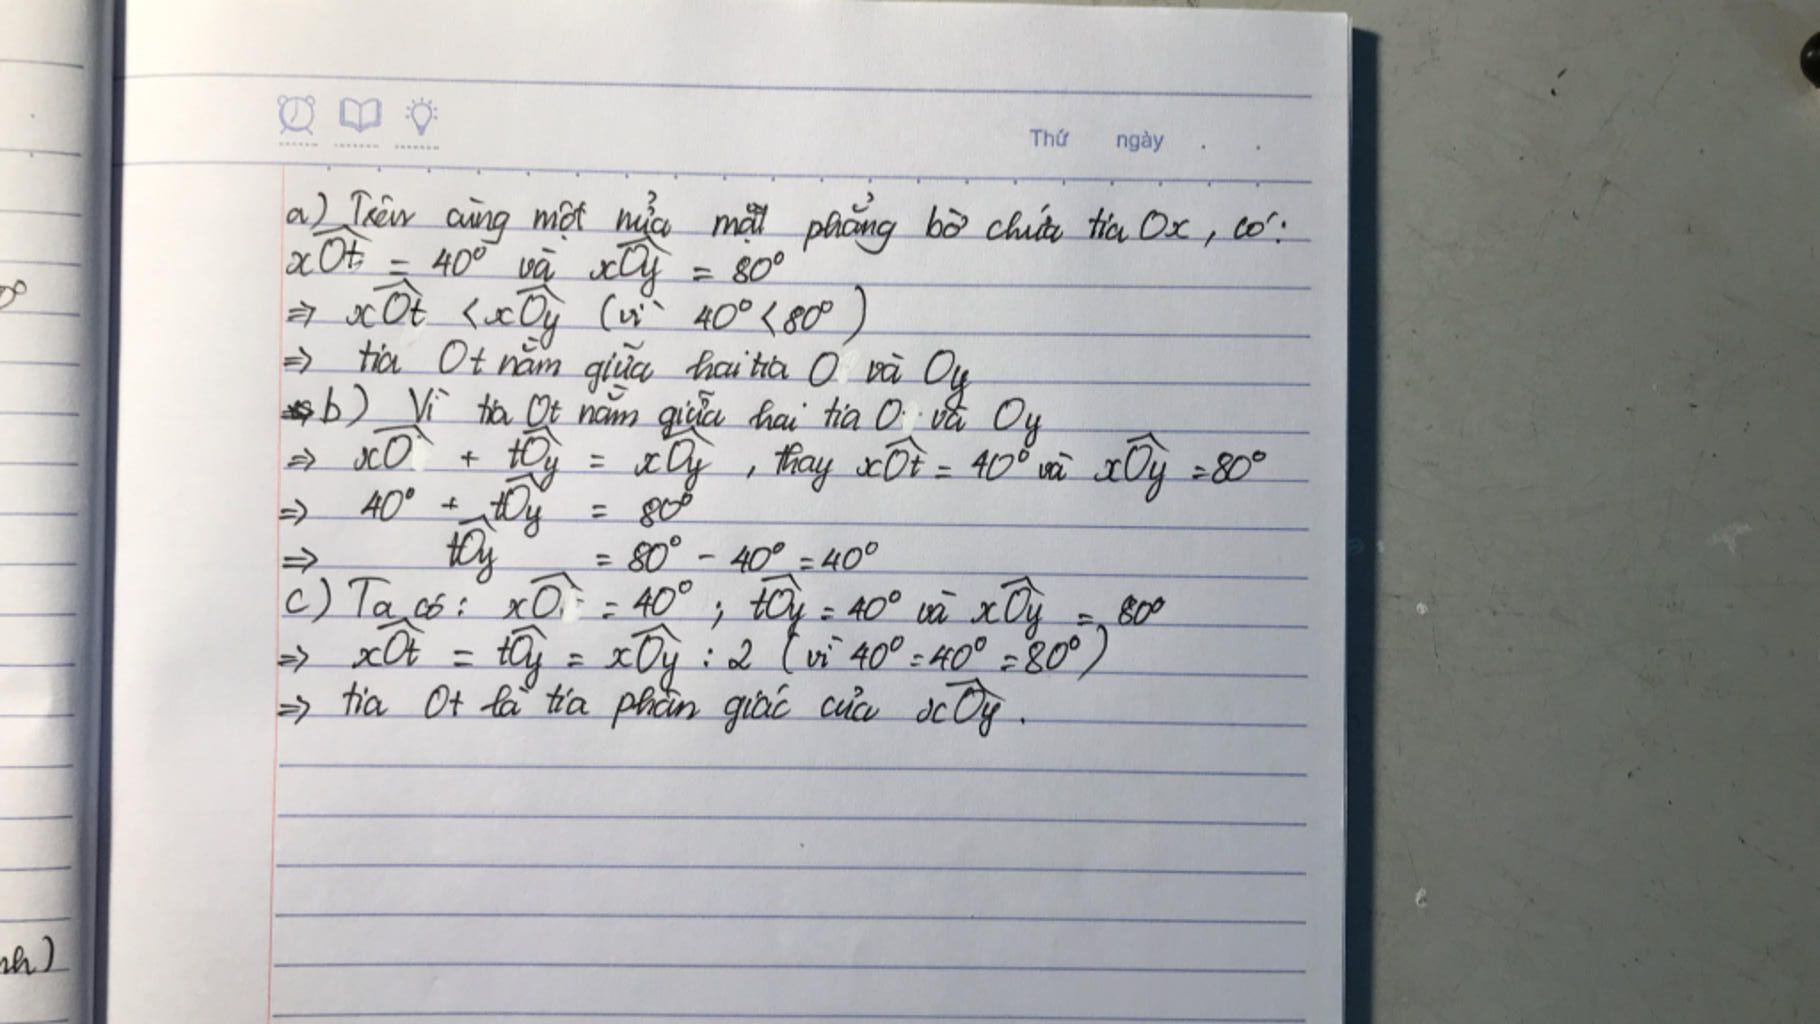 Thứ ngày . .
a) Trên cùng một nửa mặt phẳng bờ chứa tia Ox, có:
xOt = 40° và xOy = 80°
⇒ xOt < xOy (vì 40° < 80°)
⇒ tia Ot nằm giữa hai tia O và Oy
b) Vì tia Ot nằm giữa hai tia O và Oy
⇒ xO + tOy = xOy, thay xOt = 40° và xOy = 80°
⇒ 40° + tOy = 80°
⇒ tOy = 80° - 40° = 40°
c) Ta có: xO = 40° ; tOy = 40° và xOy = 80°
⇒ xOt = tOy = xOy : 2 (vì 40° = 40° = 80°)
⇒ tia Ot là tia phân giác của xOy.
0°
nh)